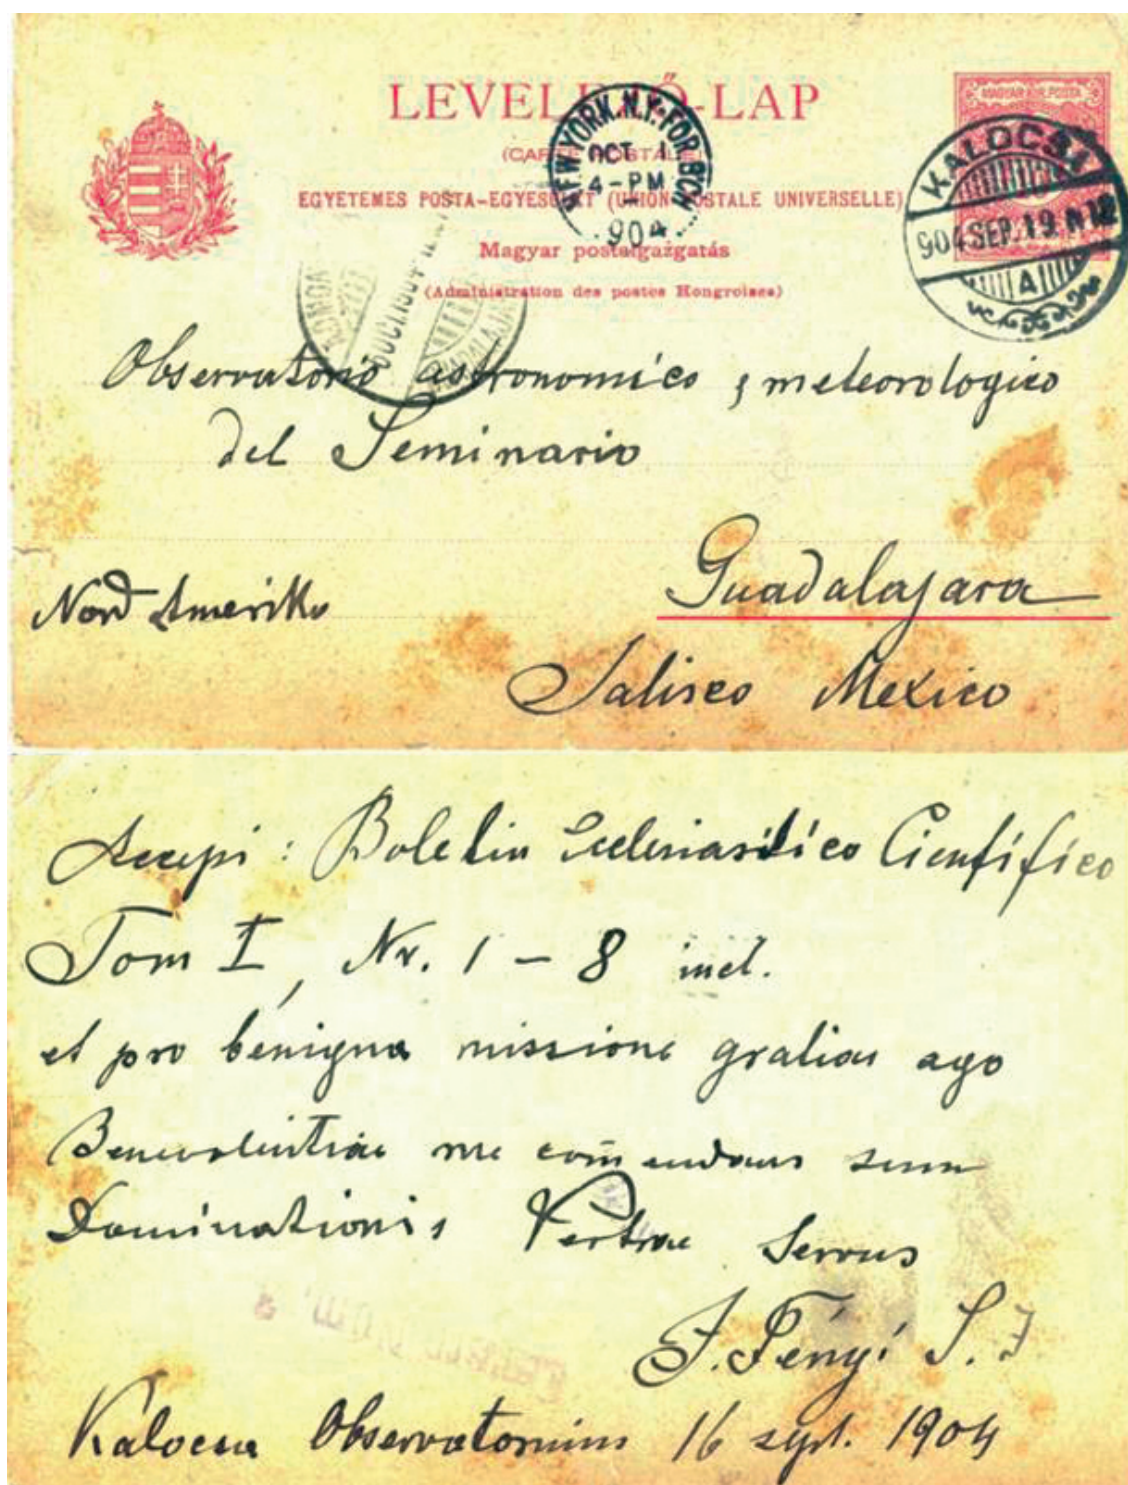 LEVELEZŐ-LAP
(CARTE POSTALE)
EGYETEMES POSTA-EGYESÜLET (UNION POSTALE UNIVERSELLE)
Magyar postaigazgatás
(Administration des postes Hongroises)
MAGYAR KIR. POSTA
NEW YORK. N.Y.
OCT 1
4-PM
904
KALOCSA
904 SEP. 19
A
Observatorio astronomico y meteorologico
del Seminario
Guadalajara
Nord Amerika
Jalisco Mexico
Accepi: Boletin Ecclesiastico Cientifico
Tom I, Nr. 1 – 8 incl.
et pro benigna missione gratias ago
Benevolentiae me com̄endans sum
Dominationis Vestrae Servus
J. Fényi S. J
Kalocsa Observatorium 16 sept. 1904